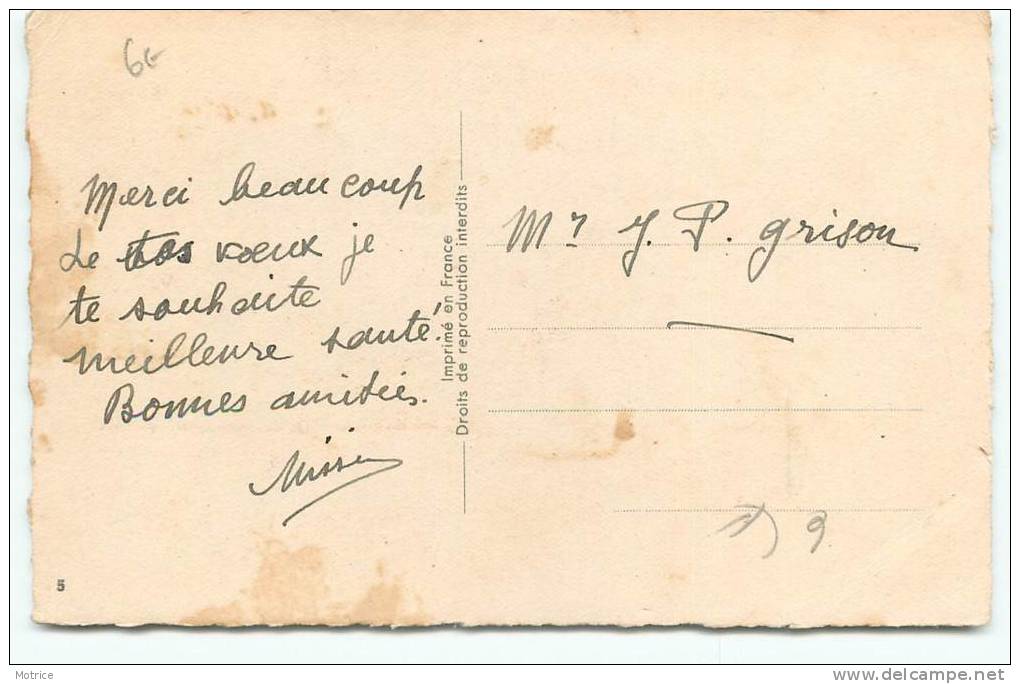 6€
Merci beaucoup
de tos vœux je
te souhaite
meilleure santé!
Bonnes amitiés.
Imprimé en France
Droits de reproduction interdits
Mr J. P. Grison
9
5
Motrice
delcampe.net